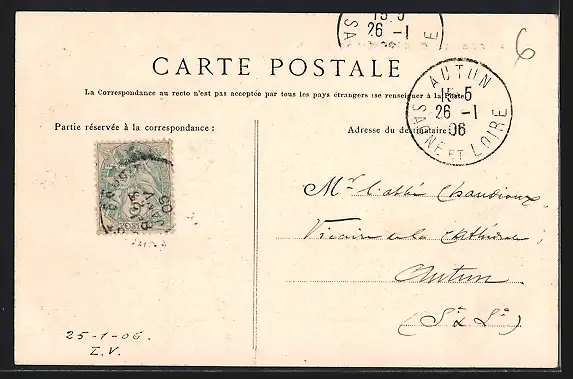 15-5
26 -1
6
CARTE POSTALE
La Correspondance au recto n'est pas acceptée par tous les pays étrangers (se renseigner à la Poste)
Partie réservée à la correspondance :
Adresse du destinataire :
AUTUN
15-5
26 -1
06
SAÔNE ET LOIRE
Mr l'abbé Chandioux,
Vicaire à la Cathédrale,
Autun
(S. & L.)
25-1-06.
E.V.